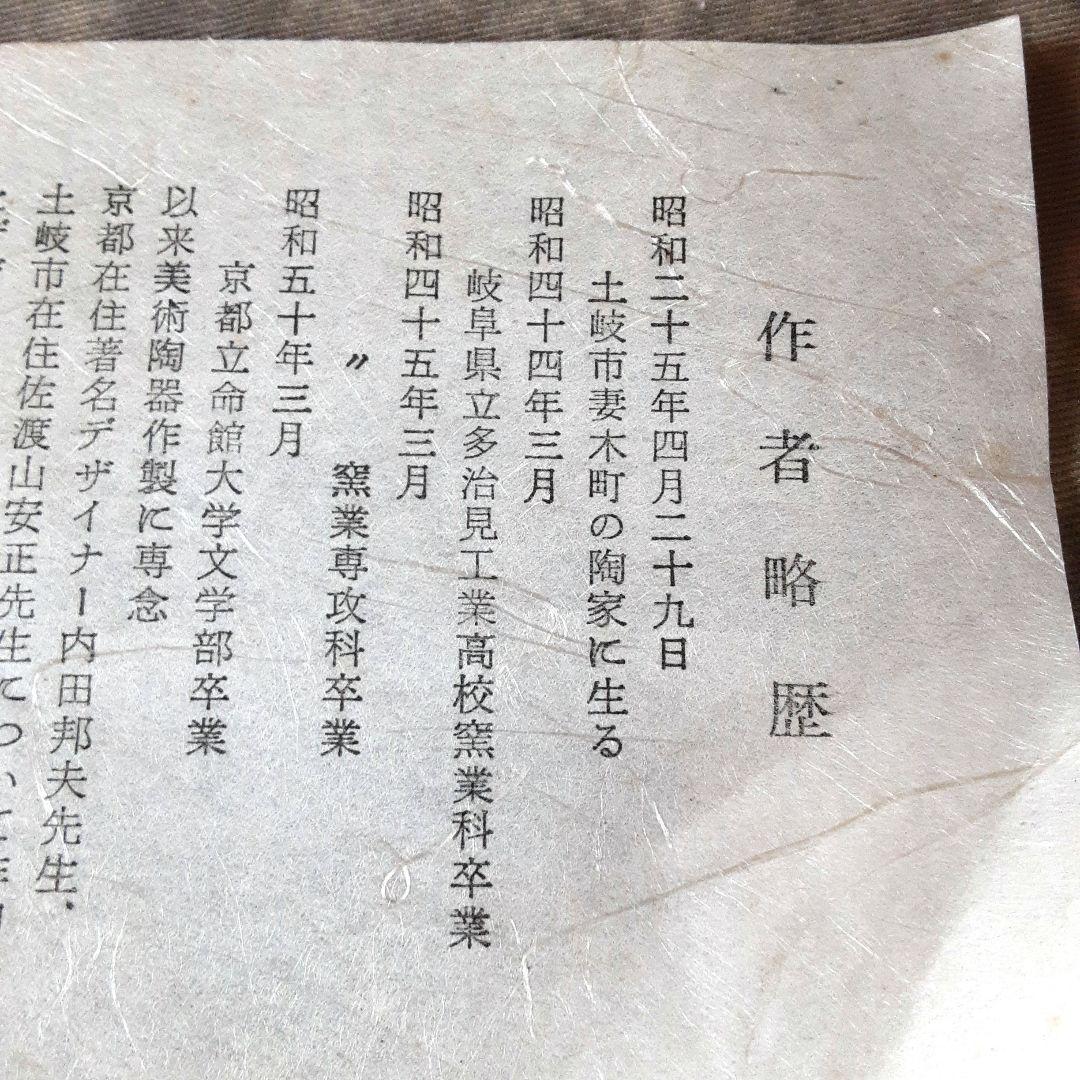 作者略歴
昭和二十五年四月二十九日
土岐市妻木町の陶家に生る
昭和四十四年三月
岐阜県立多治見工業高校窯業科卒業
昭和四十五年三月
〃 窯業専攻科卒業
昭和五十年三月
京都立命館大学文学部卒業
以来美術陶器作製に専念
京都在住著名デザイナー内田邦夫先生、
土岐市在住佐渡山安正先生について